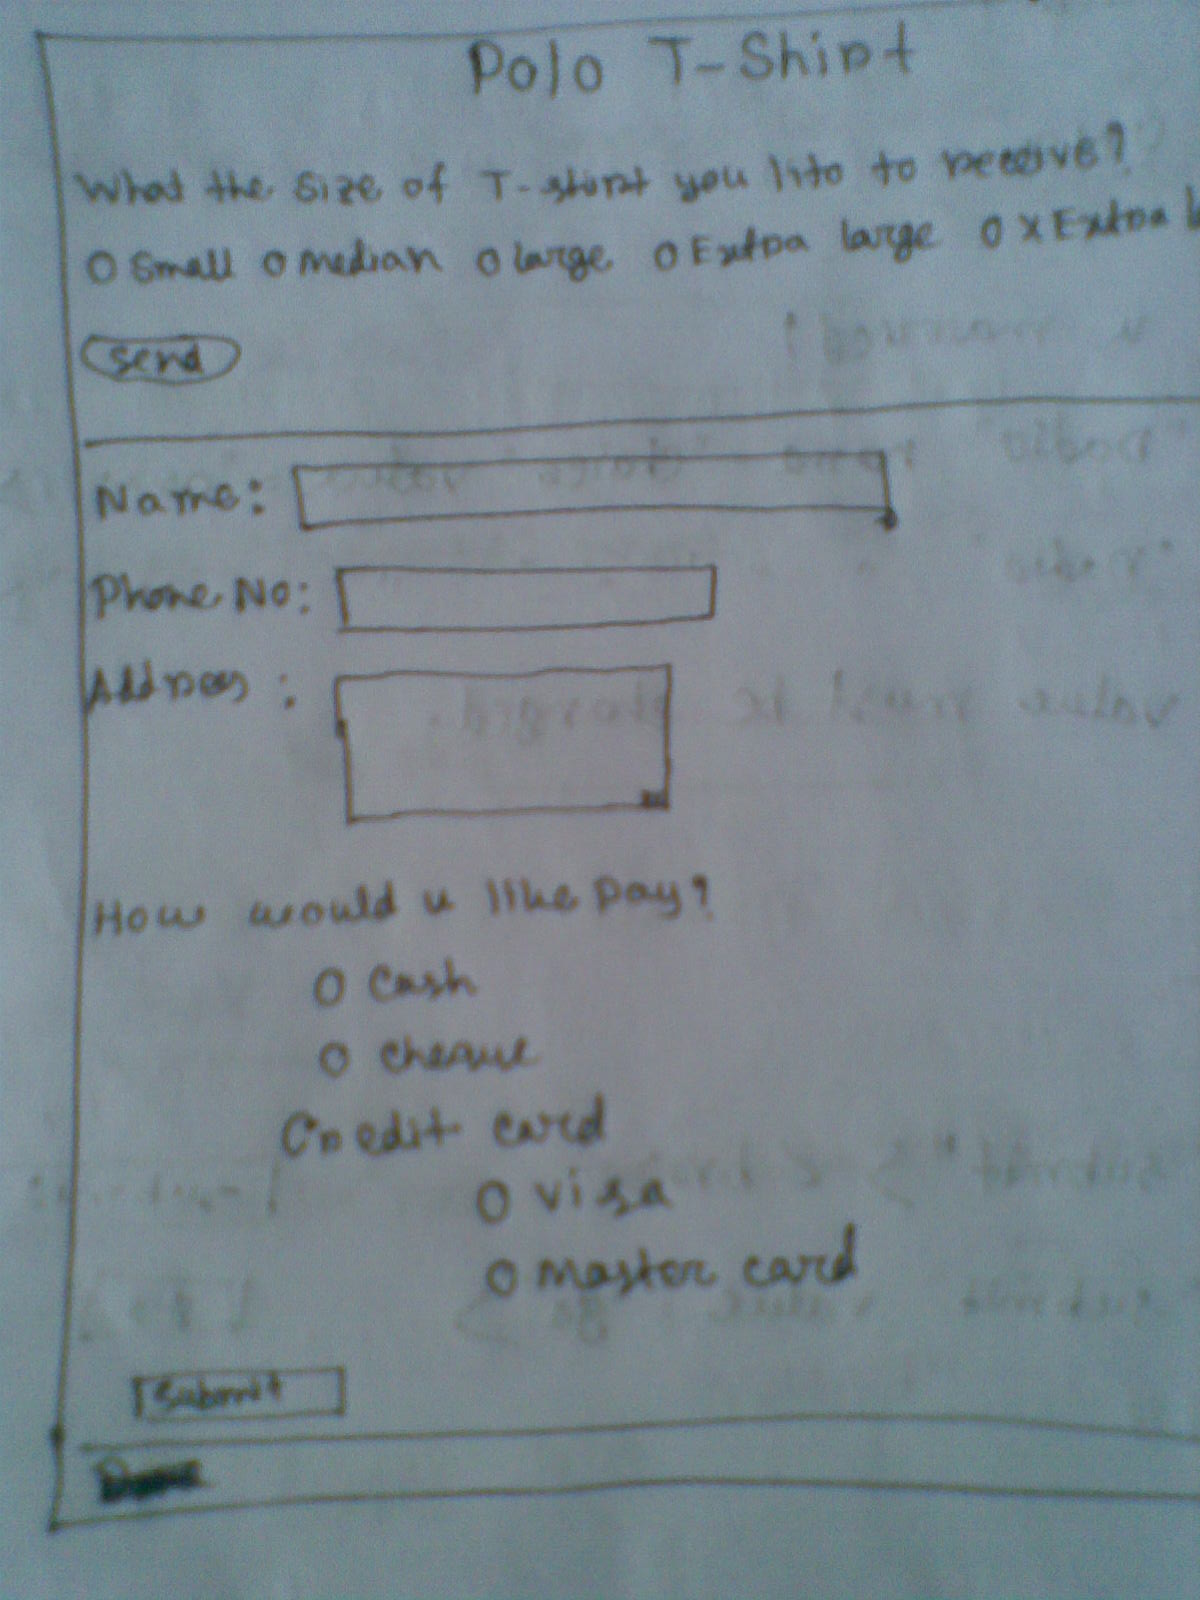 Polo T-Shirt
What the size of T-shirt you lito to receive?
O Small O median O large O Extra large O X Extra l
Send
Name:
Phone No:
Address :
How would u like Pay?
O Cash
O cheque
Credit card
O visa
O master card
Submit